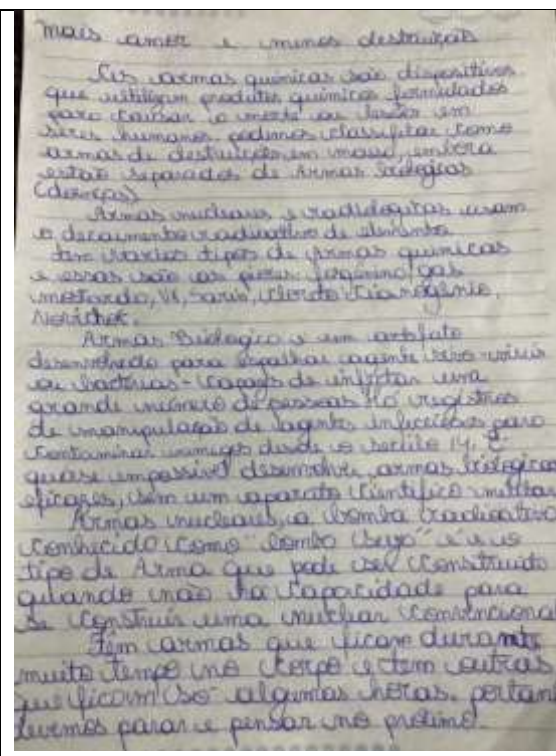 mais amor e menos destruição
As armas químicas são dispositivos
que utilizam produtos químicos formulados
para causar a morte ou lesão em
seres humanos. podemos classificar como
armas de destruição em massa, embora
estão separados de Armas biológicas
(doenças)
Armas nucleares e radiológicas usam
o decaimento radioativo de elemento
tem varios tipos de Armas químicas
e essas são as piores fosgênio, gás
mostarda, VX, Sarin, Cloreto Cianogênio,
Novichok.
Armas Biologica é um artefato
desenvolvido para espalhar agente vivo-virus
ou bactérias - capazes de infectar uma
grande número de pessoas Há registros
de manipulação de agentes infecciosos para
contaminar inimigos desde o século 14. É
quase impossível desenvolver armas biológicas
eficazes, sem um aparato cientifico militar
Armas nucleares, a bomba radioativa
conhecido como "bomba suja" é o
tipo de Arma que pode ser construído
quando não ha capacidade para
se construir uma nuclear convenciona
Têm armas que ficam durante
muito tempo no corpo e tem outras
que ficam só algumas horas. portan
devemos parar e pensar no próximo.